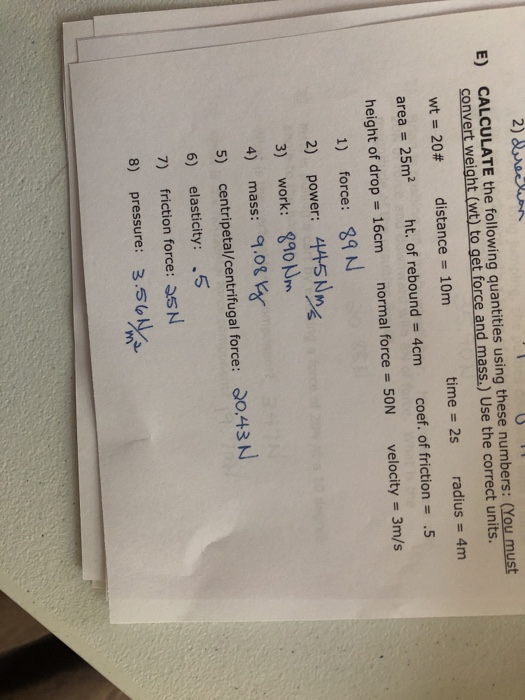 2) direction
E) CALCULATE the following quantities using these numbers: (You must
convert weight (wt) to get force and mass.) Use the correct units.
wt = 20# distance = 10m time = 2s radius = 4m
area = 25m² ht. of rebound = 4cm coef. of friction = .5
height of drop = 16cm normal force = 50N velocity = 3m/s
1) force: 89 N
2) power: 445 Nm/s
3) work: 890 Nm
4) mass: 9.08 Kg
5) centripetal/centrifugal force: 20.43 N
6) elasticity: .5
7) friction force: 25N
8) pressure: 3.56 N/m²